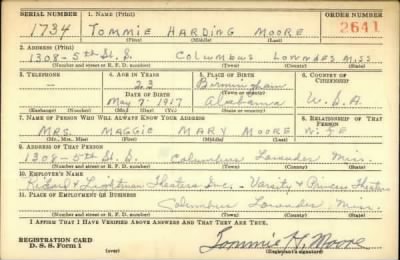 SERIAL NUMBER 1. NAME (Print) ORDER NUMBER
1734 TOMMIE HARDING MOORE 2641
(First) (Middle) (Last)
2. ADDRESS (Print)
1308-5th St. S. COLUMBUS LOWNDES MISS
(Number and street or R. F. D. number) (Town) (County) (State)
3. TELEPHONE 4. AGE IN YEARS 5. PLACE OF BIRTH 6. COUNTRY OF CITIZENSHIP
23 Birmingham
DATE OF BIRTH (Town or county)
May 7. 1917 Alabama U.S.A.
(Exchange) (Number) (Mo.) (Day) (Yr.) (State or country)
7. NAME OF PERSON WHO WILL ALWAYS KNOW YOUR ADDRESS 8. RELATIONSHIP OF THAT PERSON
MRS. MAGGIE MARY MOORE WIFE
(Mr., Mrs., Miss) (First) (Middle) (Last)
9. ADDRESS OF THAT PERSON
1308-5th St. S. Columbus Lowndes Miss.
(Number and street or R. F. D. number) (Town) (County) (State)
10. EMPLOYER'S NAME
& Lightman Theatres Inc. - Varsity & Princess Theatres
11. PLACE OF EMPLOYMENT OR BUSINESS
Columbus Lowndes, Miss.
(Number and street or R. F. D. number) (Town) (County) (State)
I AFFIRM THAT I HAVE VERIFIED ABOVE ANSWERS AND THAT THEY ARE TRUE.
REGISTRATION CARD
D. S. S. Form 1 (over) Tommie H. Moore
(Registrant's signature)